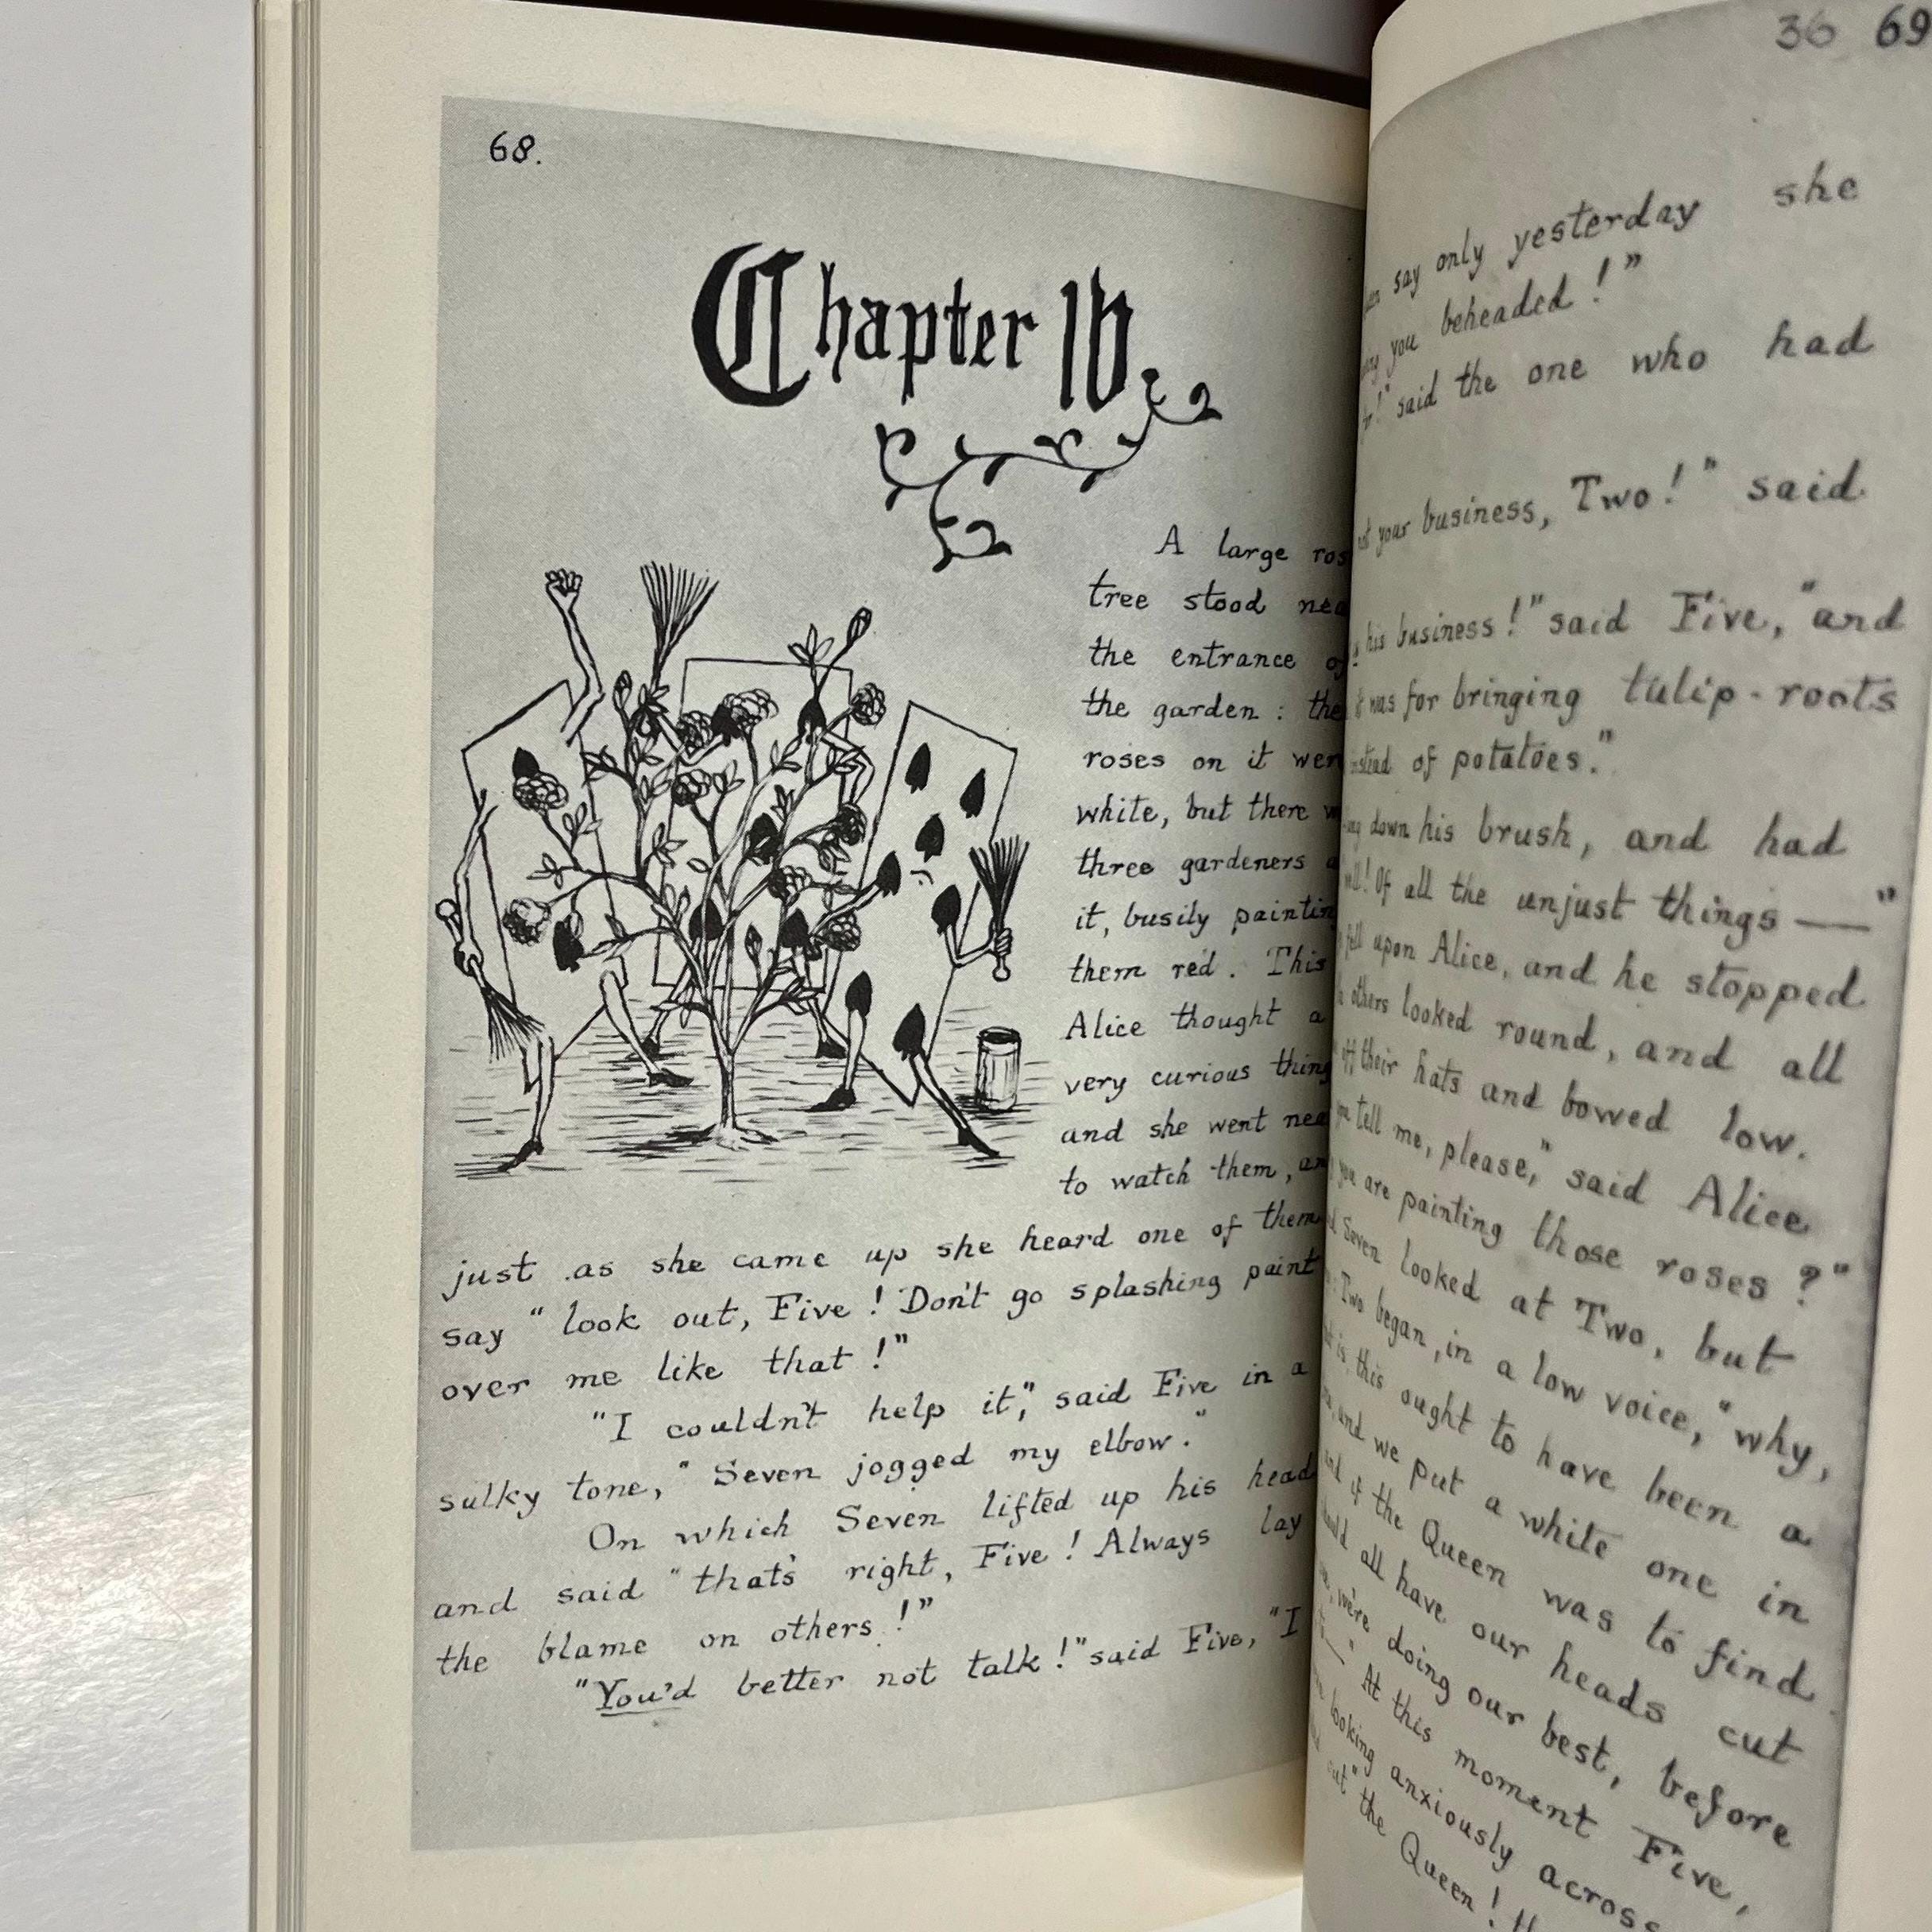 68.
Chapter IV.
A large
tree stood
the entrance
the garden : the
roses on it
white, but there
three gardeners
it, busily
them red. This
Alice thought a
very curious thing
and she went
to watch them,
just as she came up she heard one of them
say "look out, Five! Don't go splashing paint
over me like that!"
"I couldn't help it," said Five in a
sulky tone, "Seven jogged my elbow."
On which Seven lifted up his head
and said "that's right, Five! Always lay
the blame on others!"
"You'd better not talk!" said Five, "I
36 69
say only yesterday she
you beheaded!"
said the one who had
your business, Two!" said
his business!" said Five, "and
was for bringing tulip-roots
of potatoes."
down his brush, and had
Of all the unjust things —"
upon Alice, and he stopped
others looked round, and all
their hats and bowed low.
tell me, please," said Alice
you are painting those roses?"
Seven looked at Two, but
Two began, in a low voice, "why,
is, this ought to have been a
and we put a white one in
if the Queen was to find
all have our heads cut
we're doing our best, before
At this moment Five,
looking anxiously across
out "the Queen!